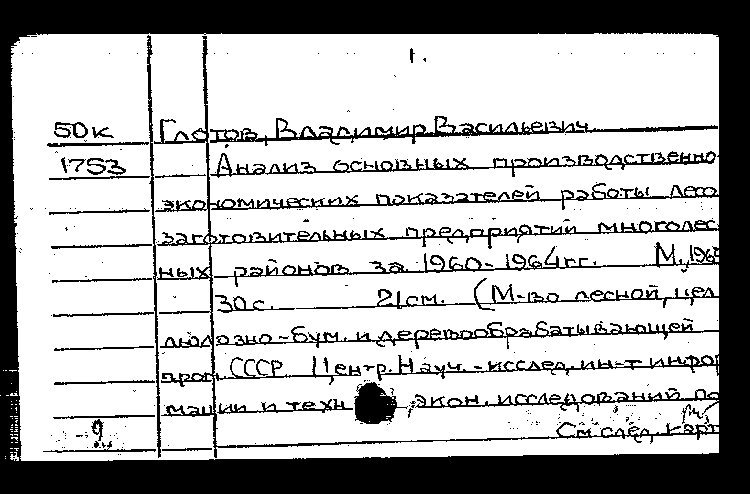 1.
50к Глотов, Владимир Васильевич.
1753 Анализ основных производственно-
экономических показателей работы лесо
заготовительных предприятий многолес
ных районов за 1960-1964гг. М., 1965
30с. 21см. (М-во лесной, цел
люлозно-бум. и деревообрабатывающей
пром. СССР Центр. Науч.-исслед. ин-т инфор
мации и техн экон. исследований по
См. след. карт
9